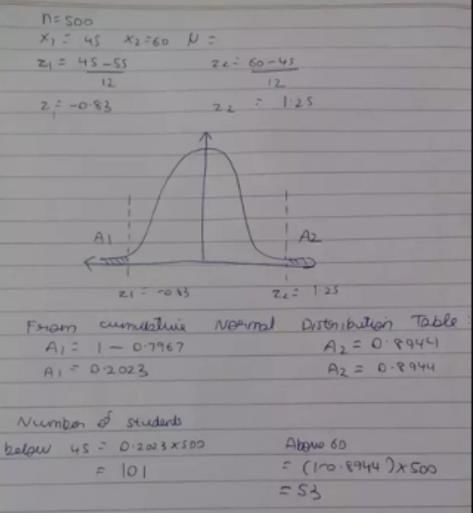 n=500
x₁ = 45 x₂=60 μ =
z₁ = 45-55/12 z₂ = 60-45/12
z₁ = -0.83 z₂ = 1.25
A1 A2
z₁ = -0.83 z₂ = 1.25
From cumulative Normal Distribution Table:
A₁ = 1 - 0.7967 A₂ = 0.8944
A₁ = 0.2023 A₂ = 0.8944
Number of students
below 45 = 0.2023×500 Above 60
= 101 = (1-0.8944)×500
= 53